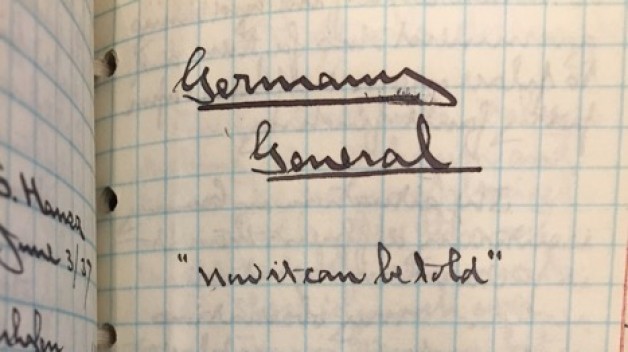 S. Hansa
June 3/37
Germany
General
"Now it can be told"